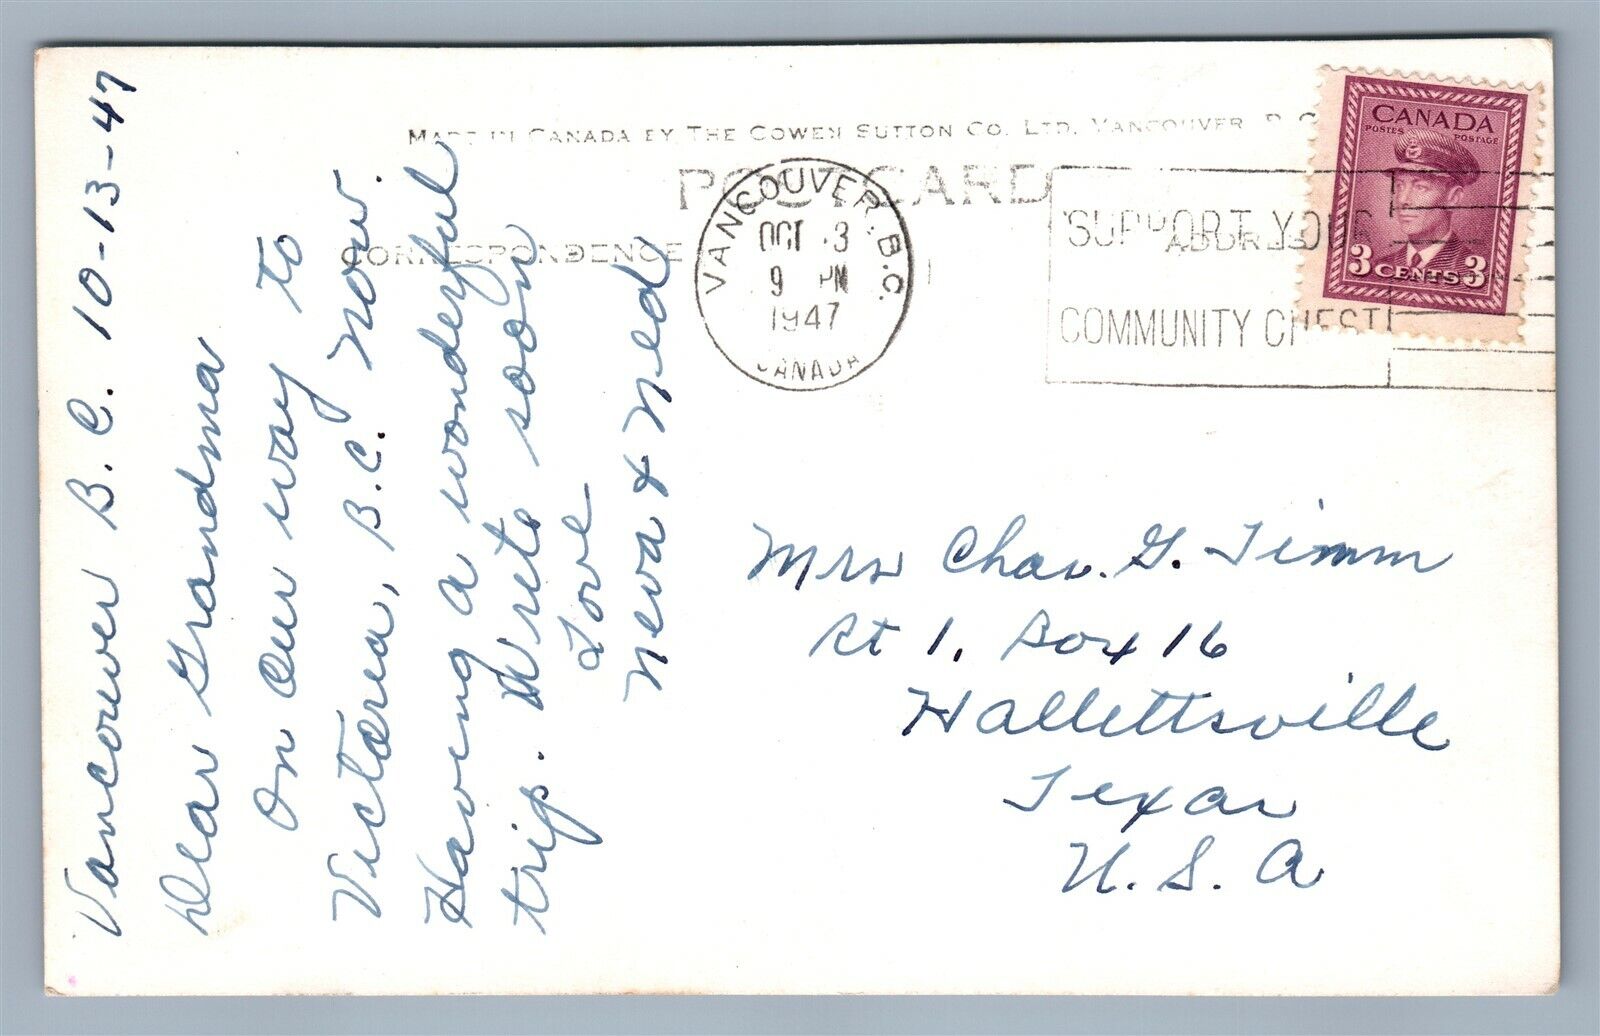 Vancouver B.C. 10-13-47
Dear Grandma
On our way to
Victoria, B.C. now.
Having a wonderful
trip. Write soon
Love
Neva & Ned
MADE IN CANADA BY THE COWEN SUTTON CO. LTD. VANCOUVER B.C.
POSTCARD
CORRESPONDENCE
ADDRESS
VANCOUVER. B.C.
OCT 3
9 PM
1947
CANADA
SUPPORT YOUR
COMMUNITY CHEST
CANADA
POSTES POSTAGE
3 CENTS 3
Mrs Chas. G. Timm
Rt 1. Box 16
Hallettsville
Texas
U.S.A